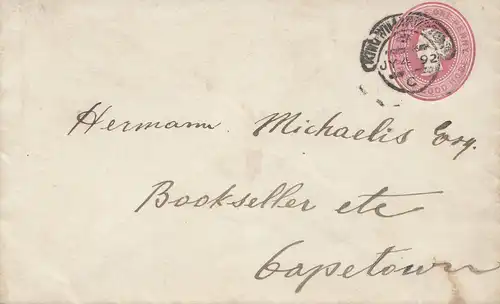 ONE PENNY
GOOD HOPE
KING WILLIAMS TOWN
92
C
Hermann Michaelis Esq.
Bookseller etc
Capetown